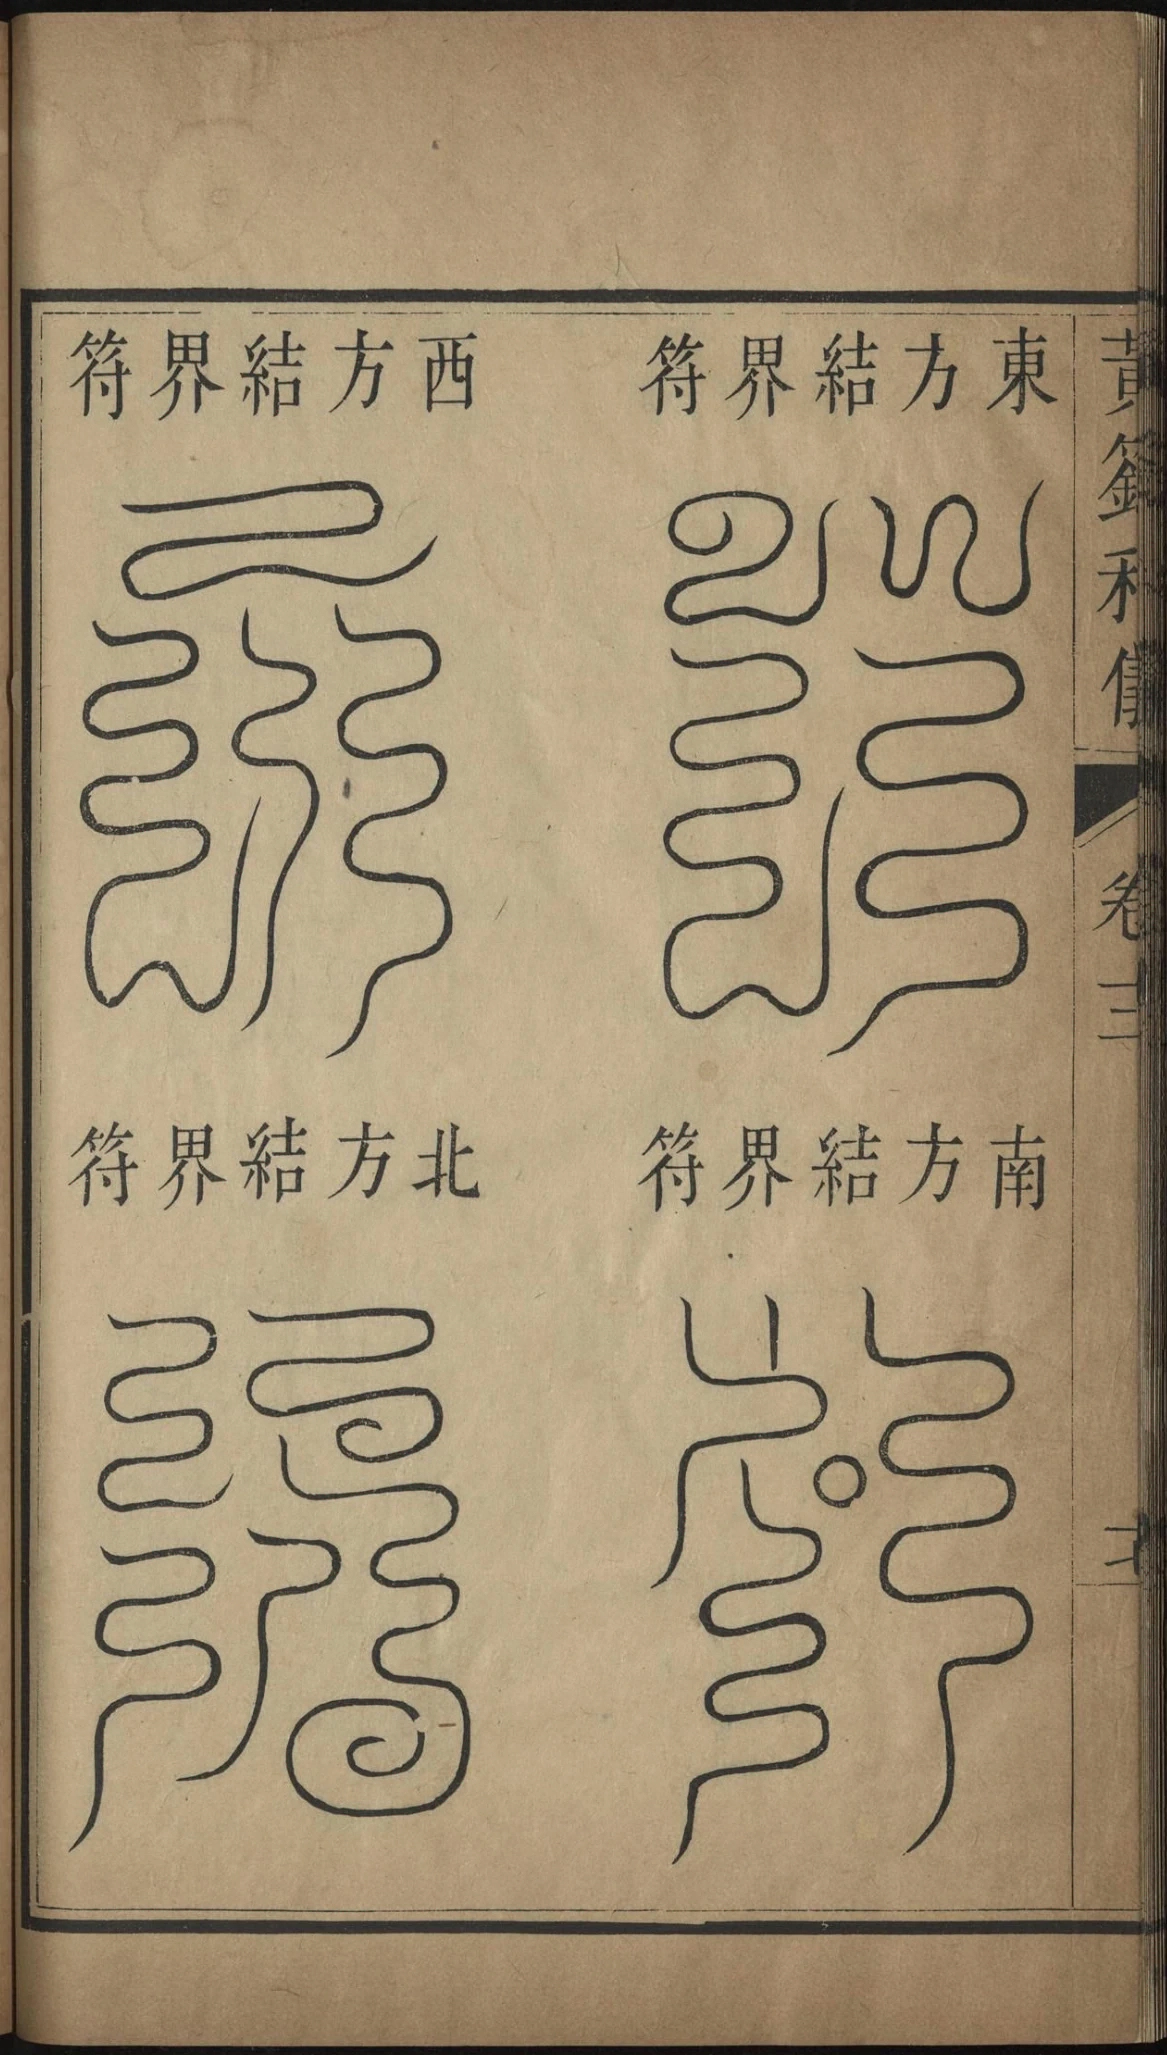 東方結界符
南方結界符
西方結界符
北方結界符
黃籙科儀
卷十二